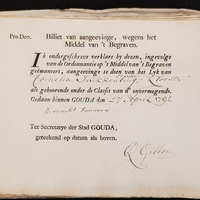 Pro Deo. Billiet van aangeevinge, wegens het
Middel van 't Begraven.
IK ondergeschreve verklare by dezen, ingevolge
van de Ordonnantie op 't Middel van 't Begraven
geëmaneert, aangeevinge te doen van het Lyk van
Cornelia
als gehoorende onder de Classis van d' onvermogende.
Gedaan binnen GOUDA den 27 April 1792
Ter Secretarye der Stad GOUDA,
geteekend op datum als boven.